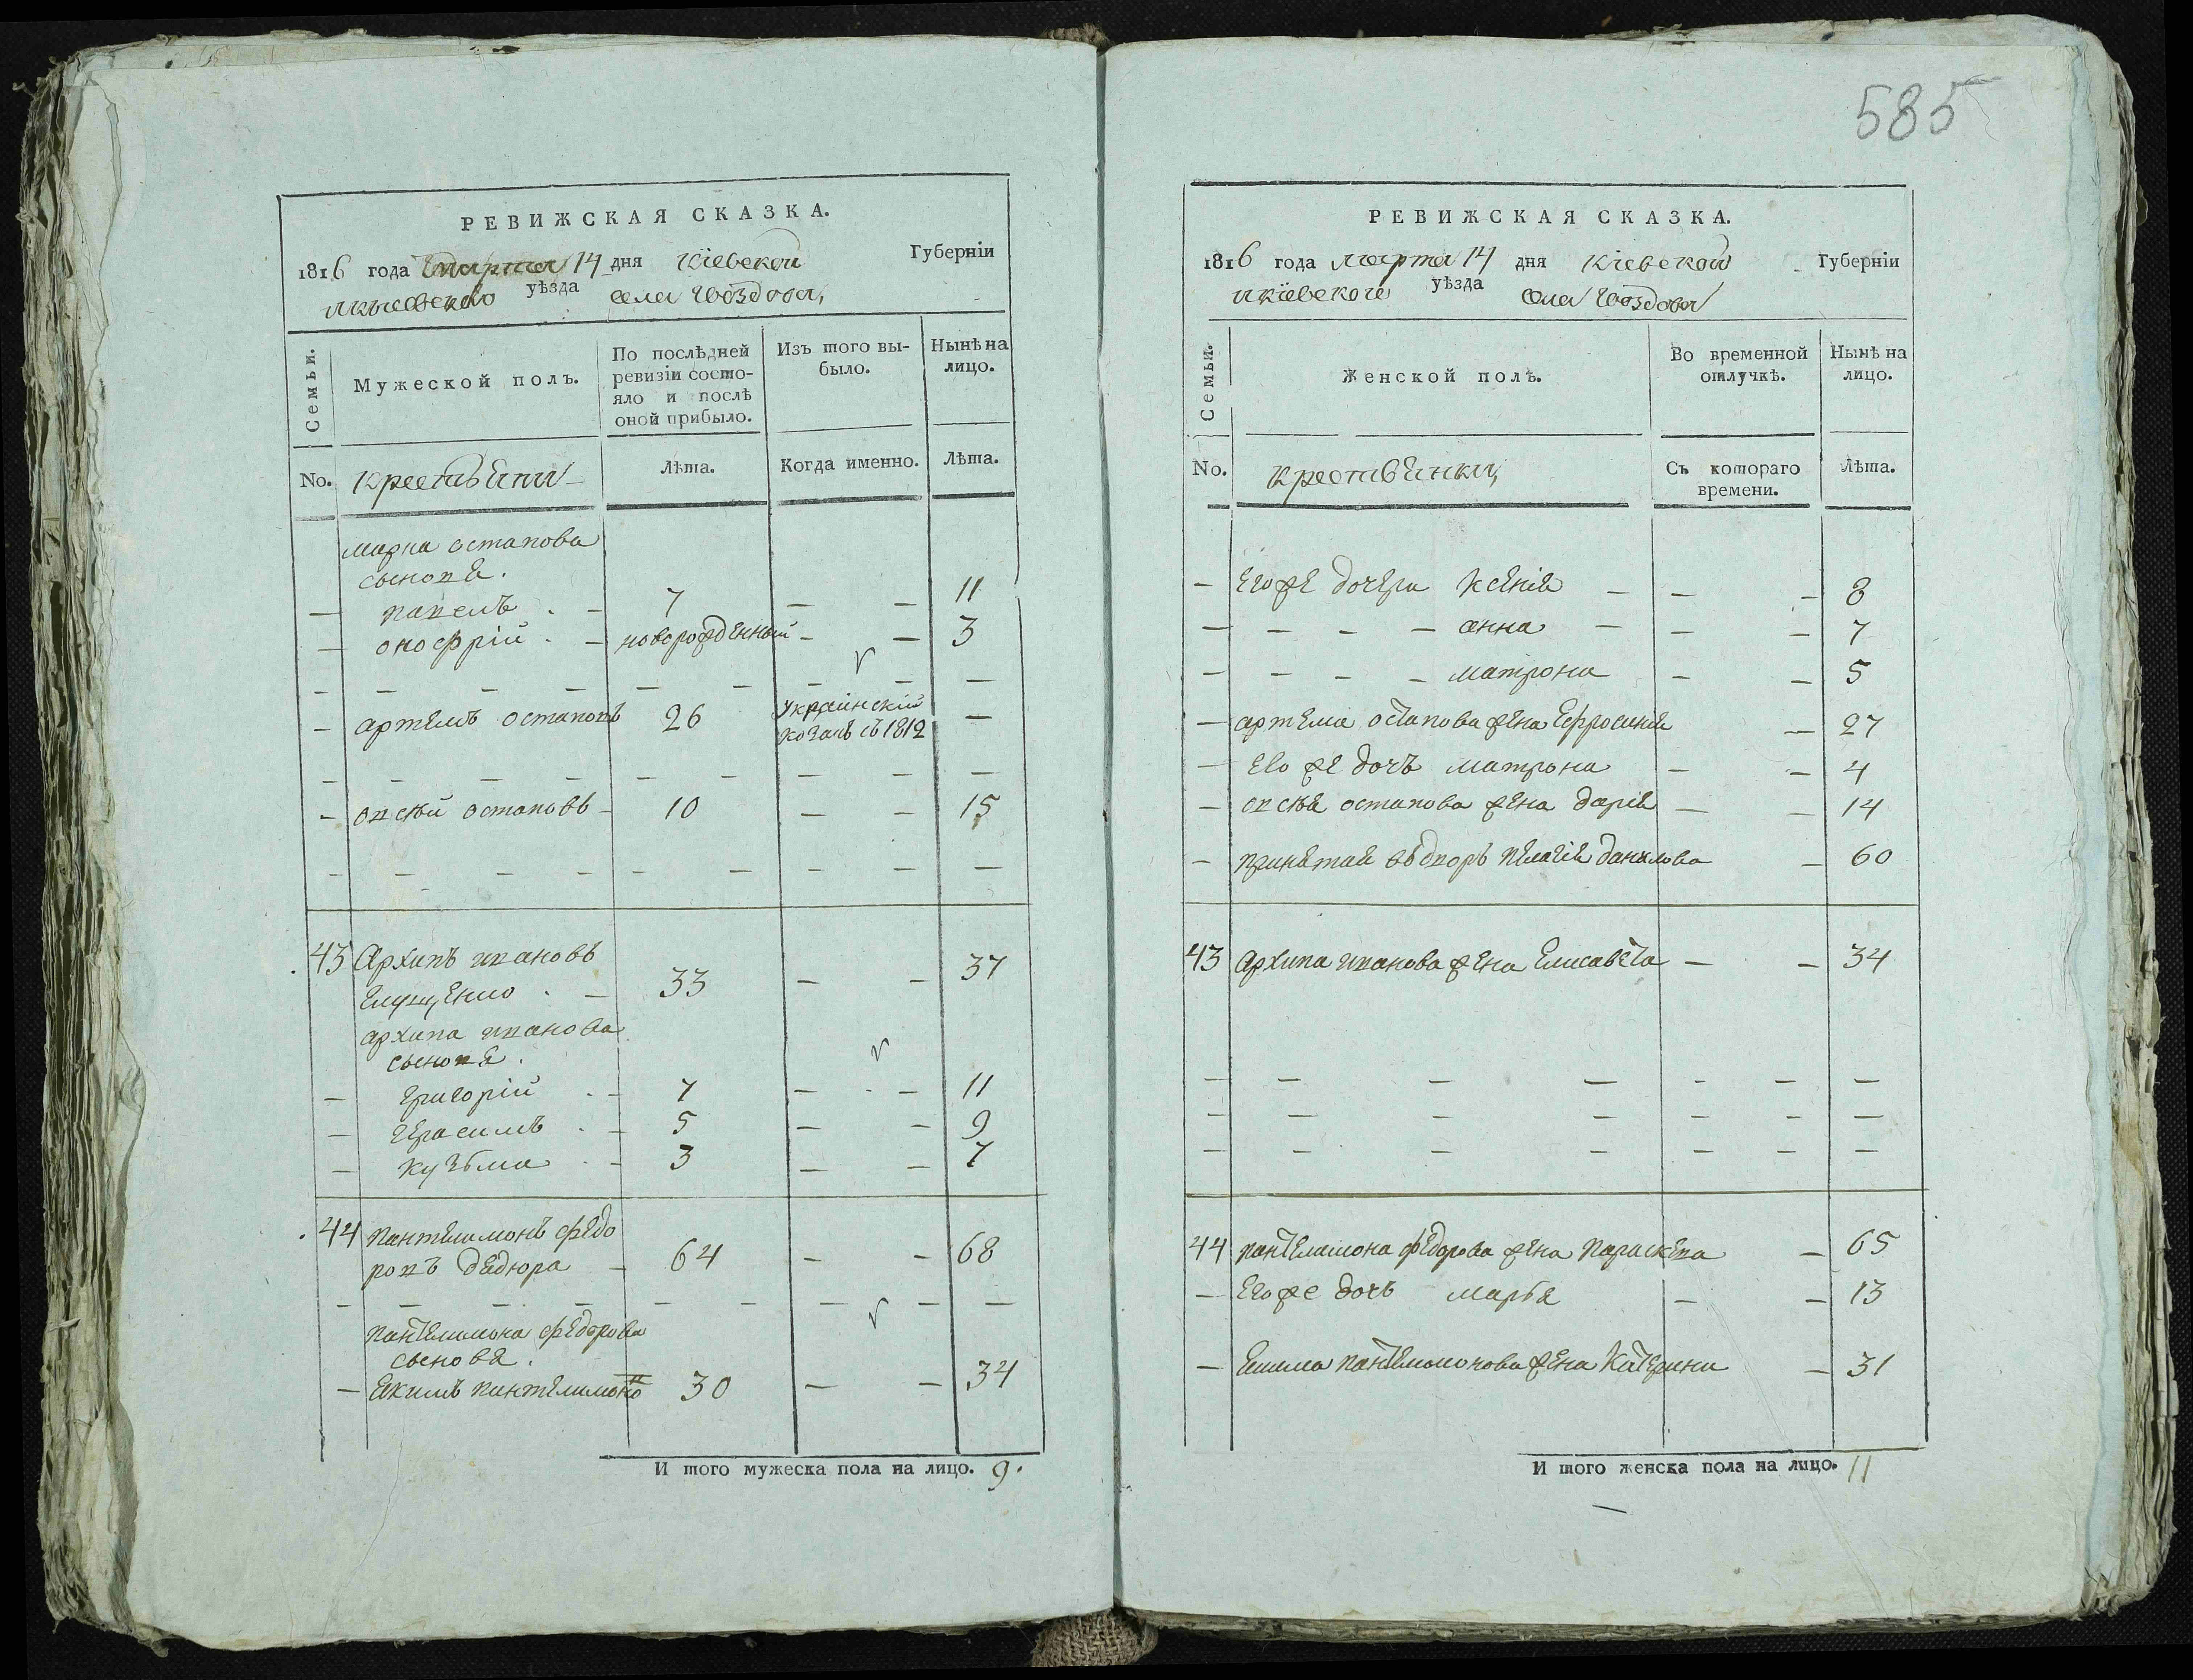 585
РЕВИЖСКАЯ СКАЗКА.
1816 года Марта 14 дня Кіевской Губерніи
Икіевского уѣзда села Гвоздова,
Семьи.
Мужеской полъ.
По послѣдней
ревизіи состо-
яло и послѣ
оной прибыло.
Изъ того вы-
было.
Нынѣ на
лицо.
No. Крестьяни Лѣта. Когда именно. Лѣта.
марка остапова
сыновя.
павелъ 7 — — 11
онофрій новорожденный — — 3
артемъ остаповъ 26 Украинскій —
козакъ съ 1812
овсѣй остаповъ 10 — — 15
43 Архипъ ивановъ
33 — — 37
архипа иванова
сыновя.
— Григорій 7 — — 11
— Герасимъ 5 — — 9
— Кузьма 3 — — 7
44 пантелимонъ федо
ровъ дядюра 64 — — 68
пантелимона федорова
сыновя.
— Якимъ пантелимоно 30 — — 34
И того мужеска пола на лицо. 9.
РЕВИЖСКАЯ СКАЗКА.
1816 года марта 14 дня Кіевской Губерніи
Икіевского уѣзда села Гвоздова
Семьи.
Женской полъ.
Во временной
отлучкѣ.
Нынѣ на
лицо.
No. Крестьянки, Съ котораго
времени. Лѣта.
— Его же дочери Ксенія — — — 8
— — — — анна — — — 7
— — — — матрона — — 5
— артема остапова жена Ефросинія — 27
— Его же дочъ матрона — — 4
— овсѣя остапова жена дарія — — 14
— принятая въ дворъ пелагія данилова — 60
43 Архипа иванова жена Елисавета — — 34
44 пантелимона федорова жена параскева — 65
— Его же дочъ марья — — 13
— Якима пантелимонова жена Катерина — 31
И того женска пола на лицо. 11